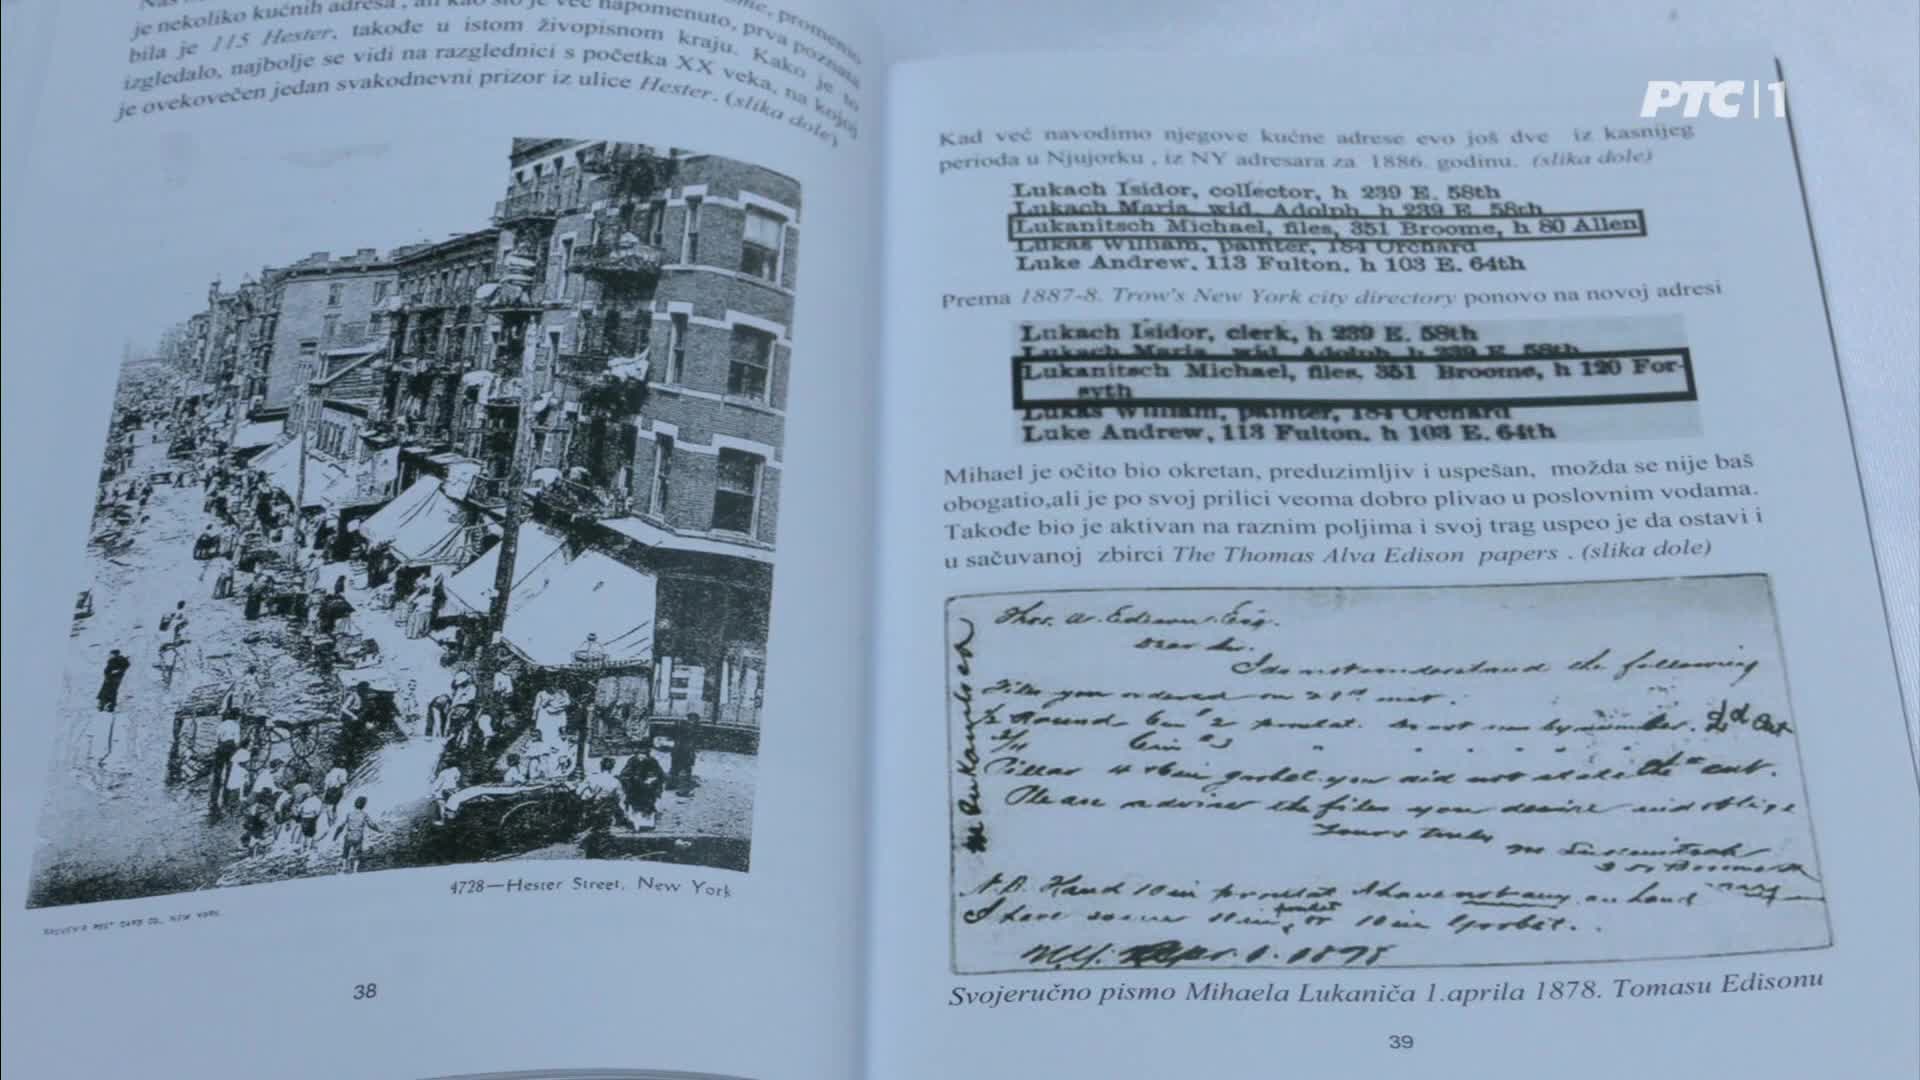 je nekoliko kućnih adresa, ali kao što je već napomenuto, prva poznata
bila je 115 Hester, takođe u istom živopisnom kraju. Kako je to
izgledalo, najbolje se vidi na razglednici s početka XX veka, na kojoj
je ovekovečen jedan svakodnevni prizor iz ulice Hester. (slika dole)
4728—Hester Street, New York
POST CARD CO., NEW YORK.
38
РТС|1
Kad već navodimo njegove kućne adrese evo još dve iz kasnijeg
perioda u Njujorku , iz NY adresara za 1886. godinu. (slika dole)
Lukach Isidor, collector, h 239 E. 58th
Lukach Maria, wid. Adolph, h 239 E. 58th
Lukanitsch Michael, files, 351 Broome, h 80 Allen
Lukas William, painter, 184 Orchard
Luke Andrew, 113 Fulton, h 103 E. 64th
Prema 1887-8. Trow's New York city directory ponovo na novoj adresi
Lukach Isidor, clerk, h 239 E. 58th
Lukach Maria, wid. Adolph, h 239 E. 58th
Lukanitsch Michael, files, 351 Broome, h 120 For-
syth
Lukas William, painter, 184 Orchard
Luke Andrew, 113 Fulton, h 103 E. 64th
Mihael je očito bio okretan, preduzimljiv i uspešan, možda se nije baš
obogatio,ali je po svoj prilici veoma dobro plivao u poslovnim vodama.
Takođe bio je aktivan na raznim poljima i svoj trag uspeo je da ostavi i
u sačuvanoj zbirci The Thomas Alva Edison papers . (slika dole)
Thos. A. Edison Esq.
Dear Sir.
I do not understand the following
Files you ordered on
Please advise the files you desire and oblige
Yours truly
N.B. Hand 10 in I have not any on hand
I have some 11 in or 10 in
N.Y. Apr. 1. 1878
Svojeručno pismo Mihaela Lukaniča 1.aprila 1878. Tomasu Edisonu
39